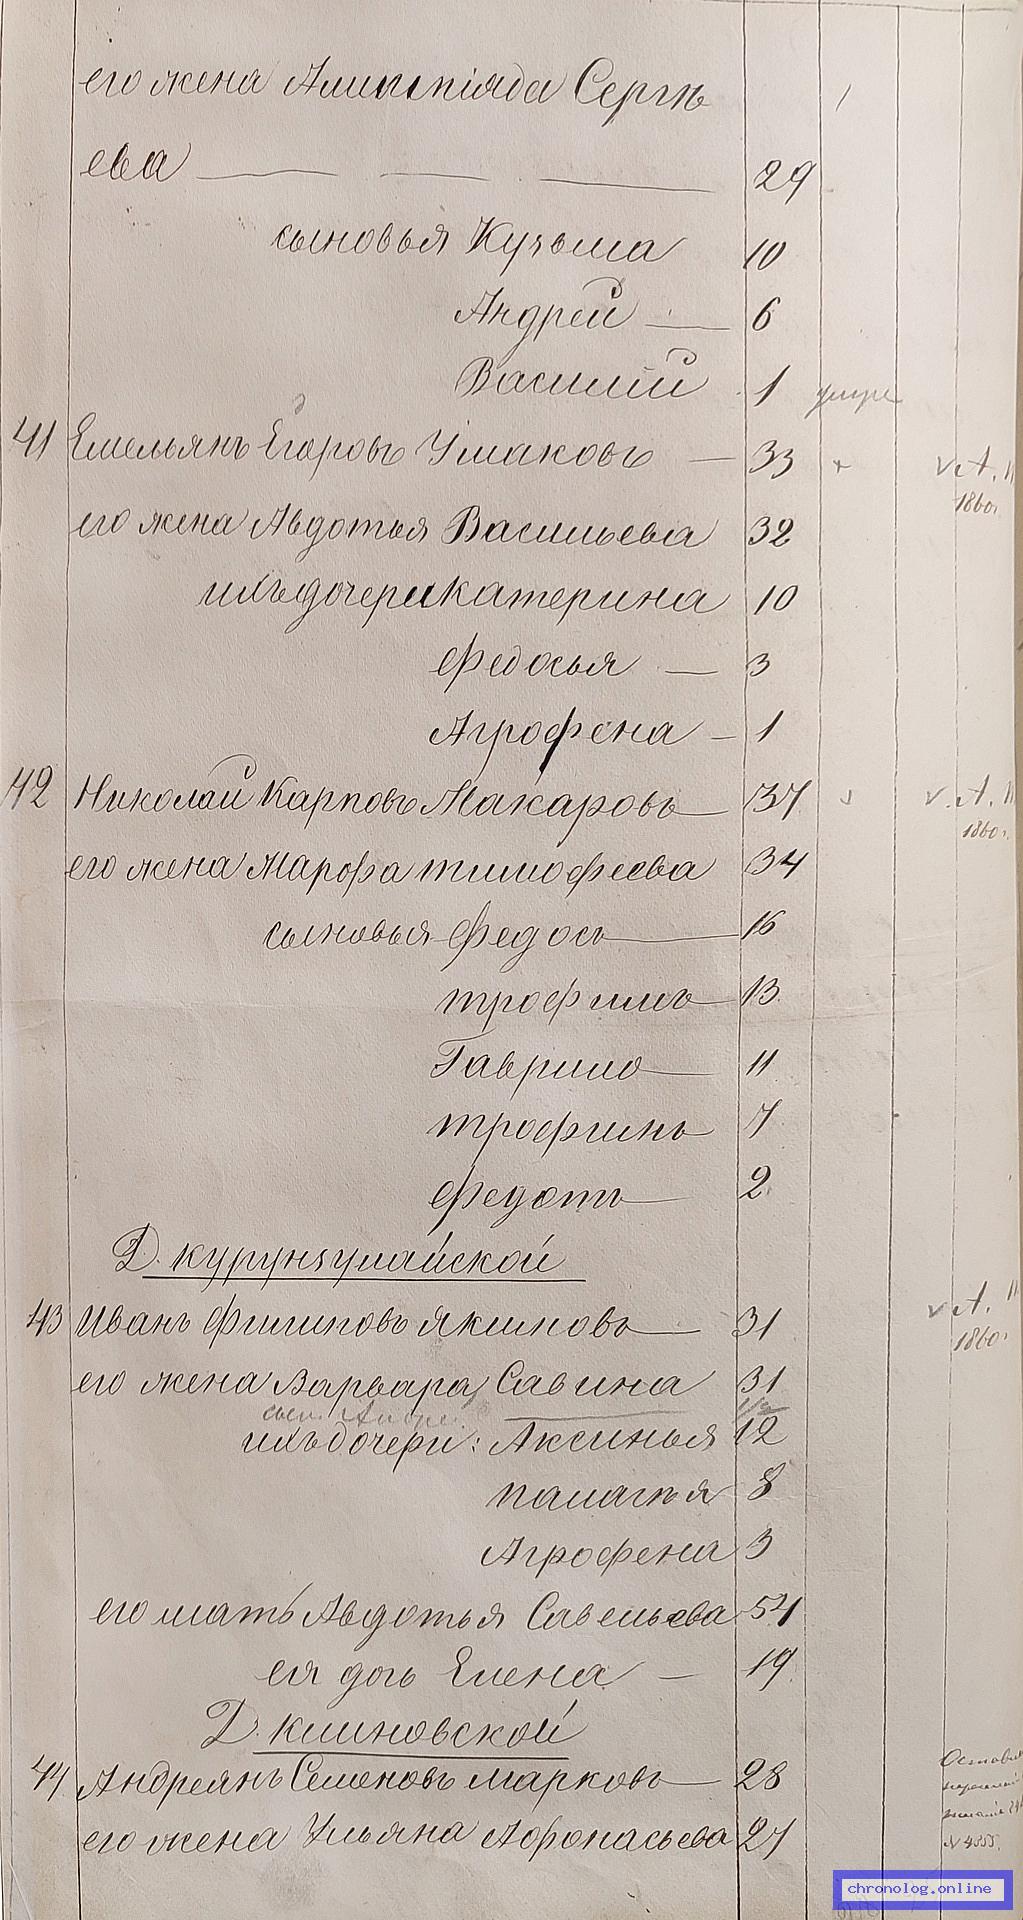 его жена Алимпіяда Сергѣ
ева 29
сыновья Кузьма 10
Андрей 6
Василій 1 умре
41 Емельянъ Егоровъ Ушаковъ 33 + v А. II
1860.
его жена Авдотья Васильева 32
ихъ дочери Катерина 10
Федосья 3
Агрофена 1
42 Николай Карповъ Макаровъ 37 v. А. II
1860.
его жена Марфа тимофеева 34
сыновья Федосъ 16
трофимъ 13
Гаврило 11
трофимъ 7
федотъ 2
Д. курунзулайской
43 Иванъ Филиповъ якимовъ 31 v А. II
1860.
его жена Варвара Савина 31
сын Андре. 1/2
ихъ дочери: Аксинья 12
палагъя 8
Агрофена 3
его мать Авдотья Савельева 54
ея дочь Елена 19
Д. климовской
44 Андреянъ Семеновъ марковъ 28
его жена Ульяна Афонасьева 27
N 4355.
chronolog.online